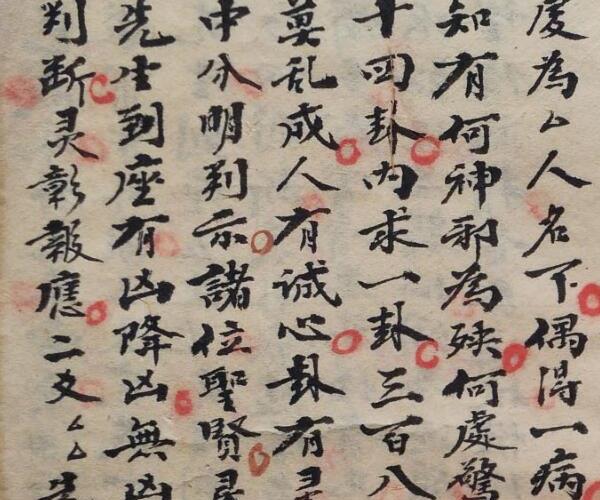 度為厶人名下偶得一病
知有何神邪為殃何處驚
十四卦內求一卦三百八
莫乱成人有诚心卦有灵
中分明判示諸位聖賢灵
先生到座有凶降凶無凶
判断灵彰報應二爻厶厶